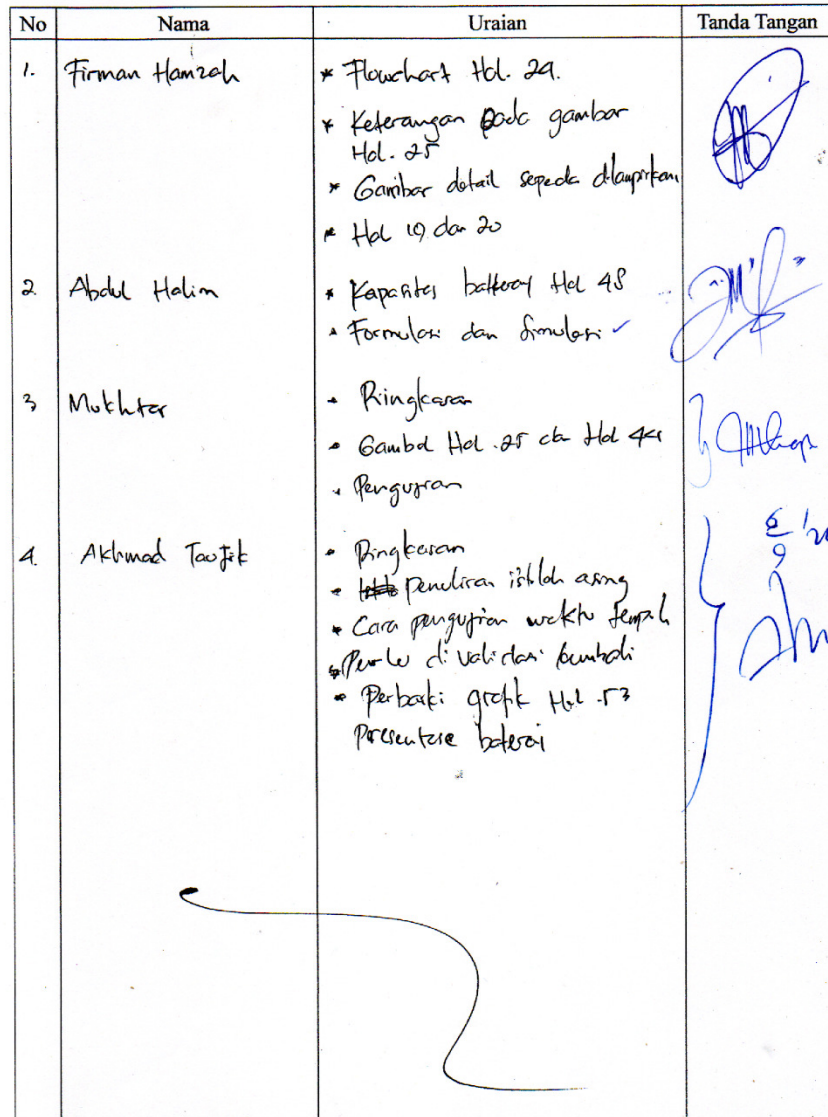 No Nama Uraian Tanda Tangan
1. Firman Hamzah * Flowchart Hal. 29.
* Keterangan pada gambar
Hal. 25
* Gambar detail sepeda dilampirkan
* Hal 19 dan 20
2 Abdul Halim * Kapasitas battery Hal 48
* Formulasi dan Simulasi ✓
3 Mukhtar • Ringkasan
• Gambar Hal. 25 dan Hal 44
• Pengujian
4. Akhmad Taufik • Ringkasan
• penulisan istilah asing
• Cara pengujian waktu tempuh
• Perlu di validasi kembali
• Perbaiki grafik Hal. 53
Presentase baterai